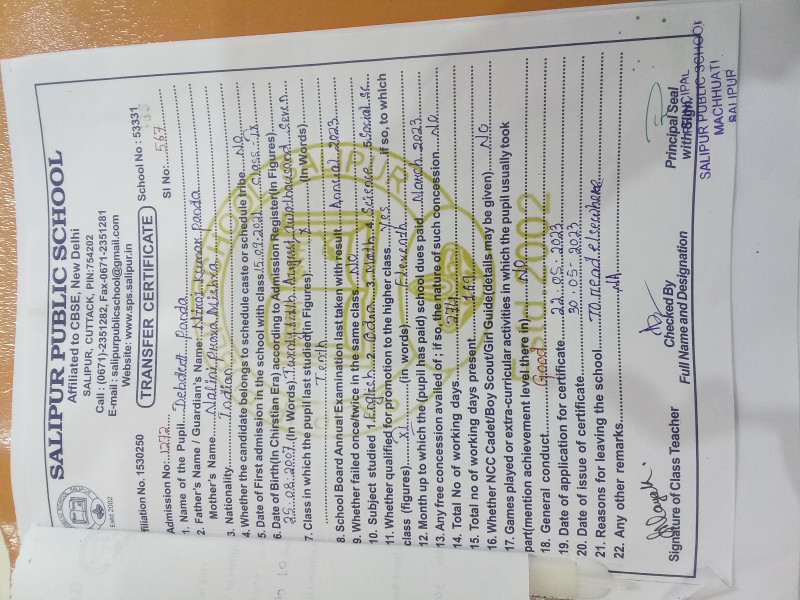 SALIPUR PUBLIC SCHOOL
Affiliated to CBSE, New Delhi
SALIPUR, CUTTACK, PIN:754202
Call : (0671)-2351282, Fax-0671-2351281
E-mail : salipurpublicschool@gmail.com
Website: www.sps.salipur.in
Estd. 2002
filiation No. 1530250 TRANSFER CERTIFICATE School No : 53331
Admission No: 1272 Sl No: 567
1. Name of the Pupil Debadatt Panda
2. Father's Name / Guardian's Name: Niroj Kumar Panda
Mother's Name Nalini Prava Mishra
3. Nationality Indian
4. Whether the candidate belongs to schedule caste or schedule tribe. No
5. Date of First admission in the school with class 15.07.2021 Class-IX
6. Date of Birth(In Chirstian Era) according to Admission Register(In Figures)
25.08.2007 (In Words) Twentyfifth August Twothousand Seven
7. Class in which the pupil last studied(in Figures) X (In Words)
Tenth
8. School Board Annual Examination last taken with result Annual 2023
9. Whether failed once/twice in the same class No
10. Subject studied 1 English 2 Odia 3 Math 4 Science 5 Social Sc
11. Whether qualified for promotion to the higher class Yes if so, to which
class (figures) XI (in words) Eleventh
12. Month up to which the (pupil has paid) school dues paid March 2023
13. Any free concession availed of ; if so, the nature of such concession No
14. Total No of working days
15. Total no of working days present
16. Whether NCC Cadet/Boy Scout/Girl Guide(details may be given) No
17. Games played or extra-curricular activities in which the pupil usually took
part(mention achievement level there in) No
18. General conduct Good
19. Date of application for certificate 22.05.2023
20. Date of issue of certificate 30.05.2023
21. Reasons for leaving the school To read elsewhere
22. Any other remarks NA
Signature of Class Teacher Checked By Principal Seal
Full Name and Designation with Sign.
PRINCIPAL
SALIPUR PUBLIC SCHOOL
MACHHUATI
SALIPUR
Estd. 2002